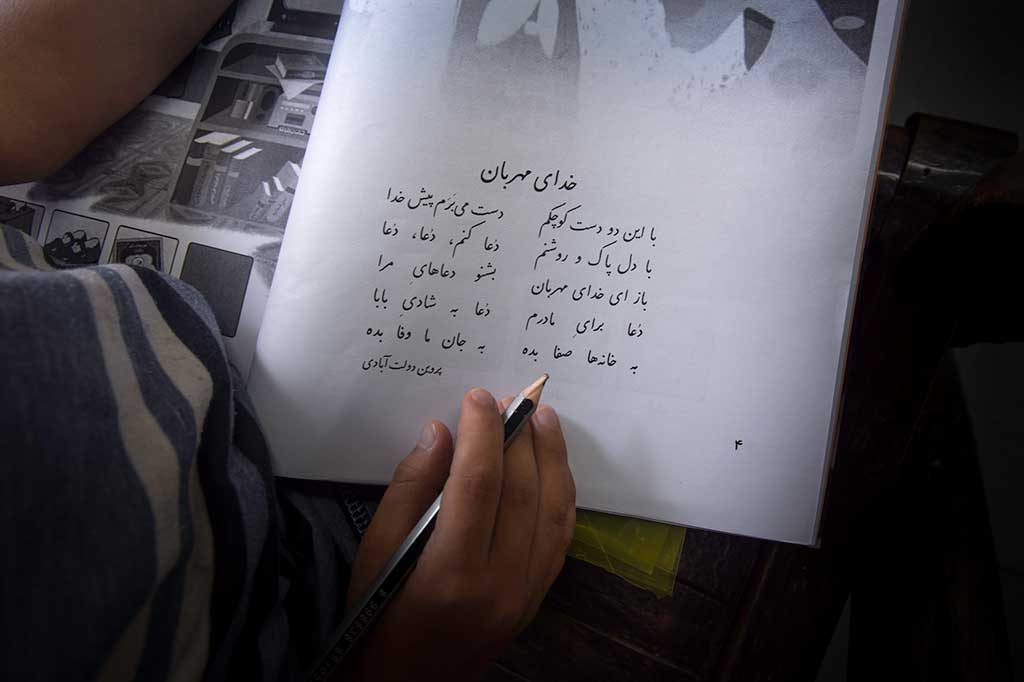 خدای مهربان
با این دو دست کوچکم دست می‌بَرَم پیش خدا
با دل پاک و روشنم دُعا کنم، دُعا، دُعا
باز ای خدای مهربان بشنو دعاهایِ مرا
دُعا برایِ مادرم دُعا به شادیِ بابا
به خانه‌ها صفا بده به جان ما وفا بده
پروین دولت‌آبادی
۴